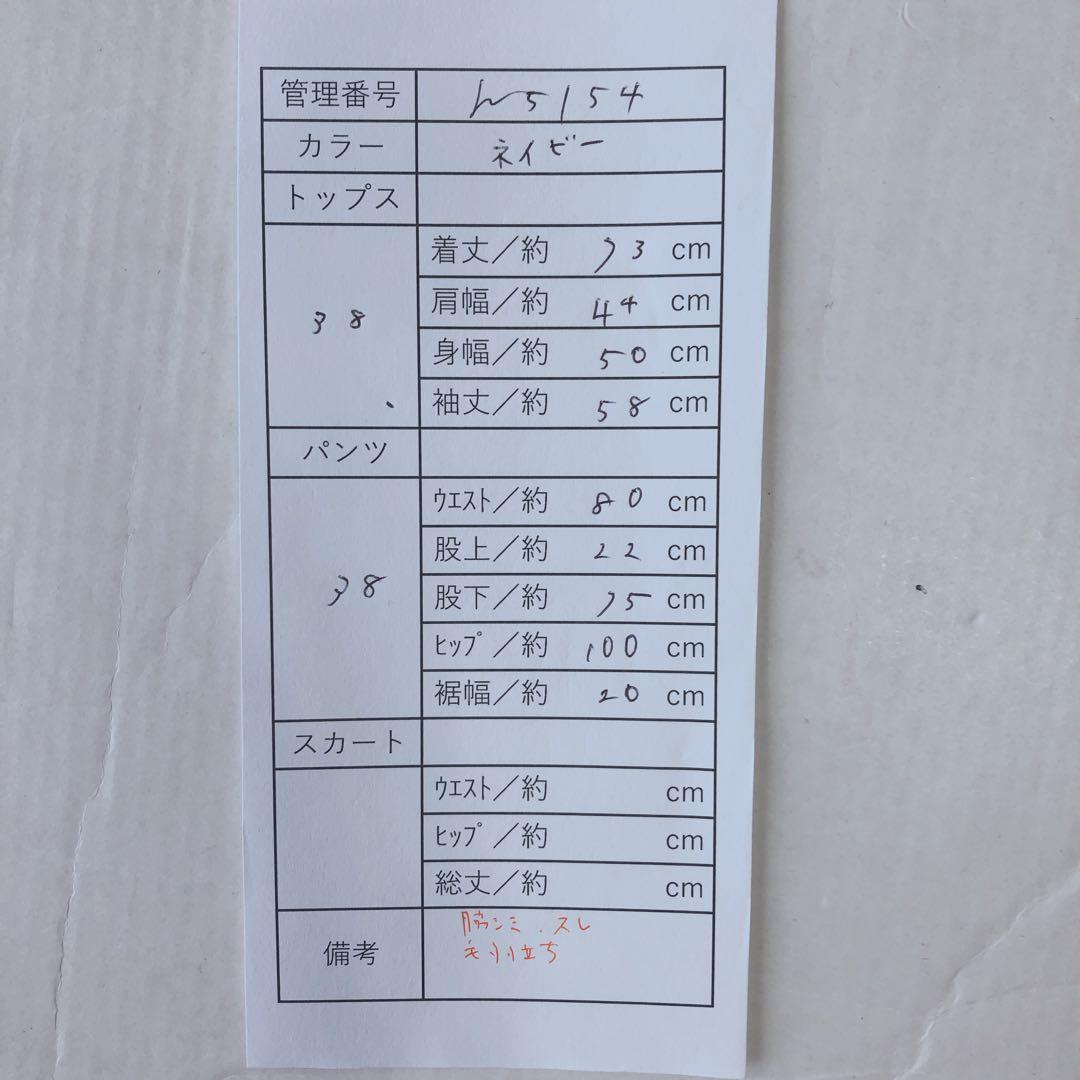 管理番号 h5154
カラー ネイビー
トップス
38
着丈／約 73 cm
肩幅／約 44 cm
身幅／約 50 cm
袖丈／約 58 cm
パンツ
38
ｳｴｽﾄ／約 80 cm
股上／約 22 cm
股下／約 75 cm
ﾋｯﾌﾟ／約 100 cm
裾幅／約 20 cm
スカート
ｳｴｽﾄ／約 cm
ﾋｯﾌﾟ／約 cm
総丈／約 cm
備考
脇シミ．スレ
毛羽立ち